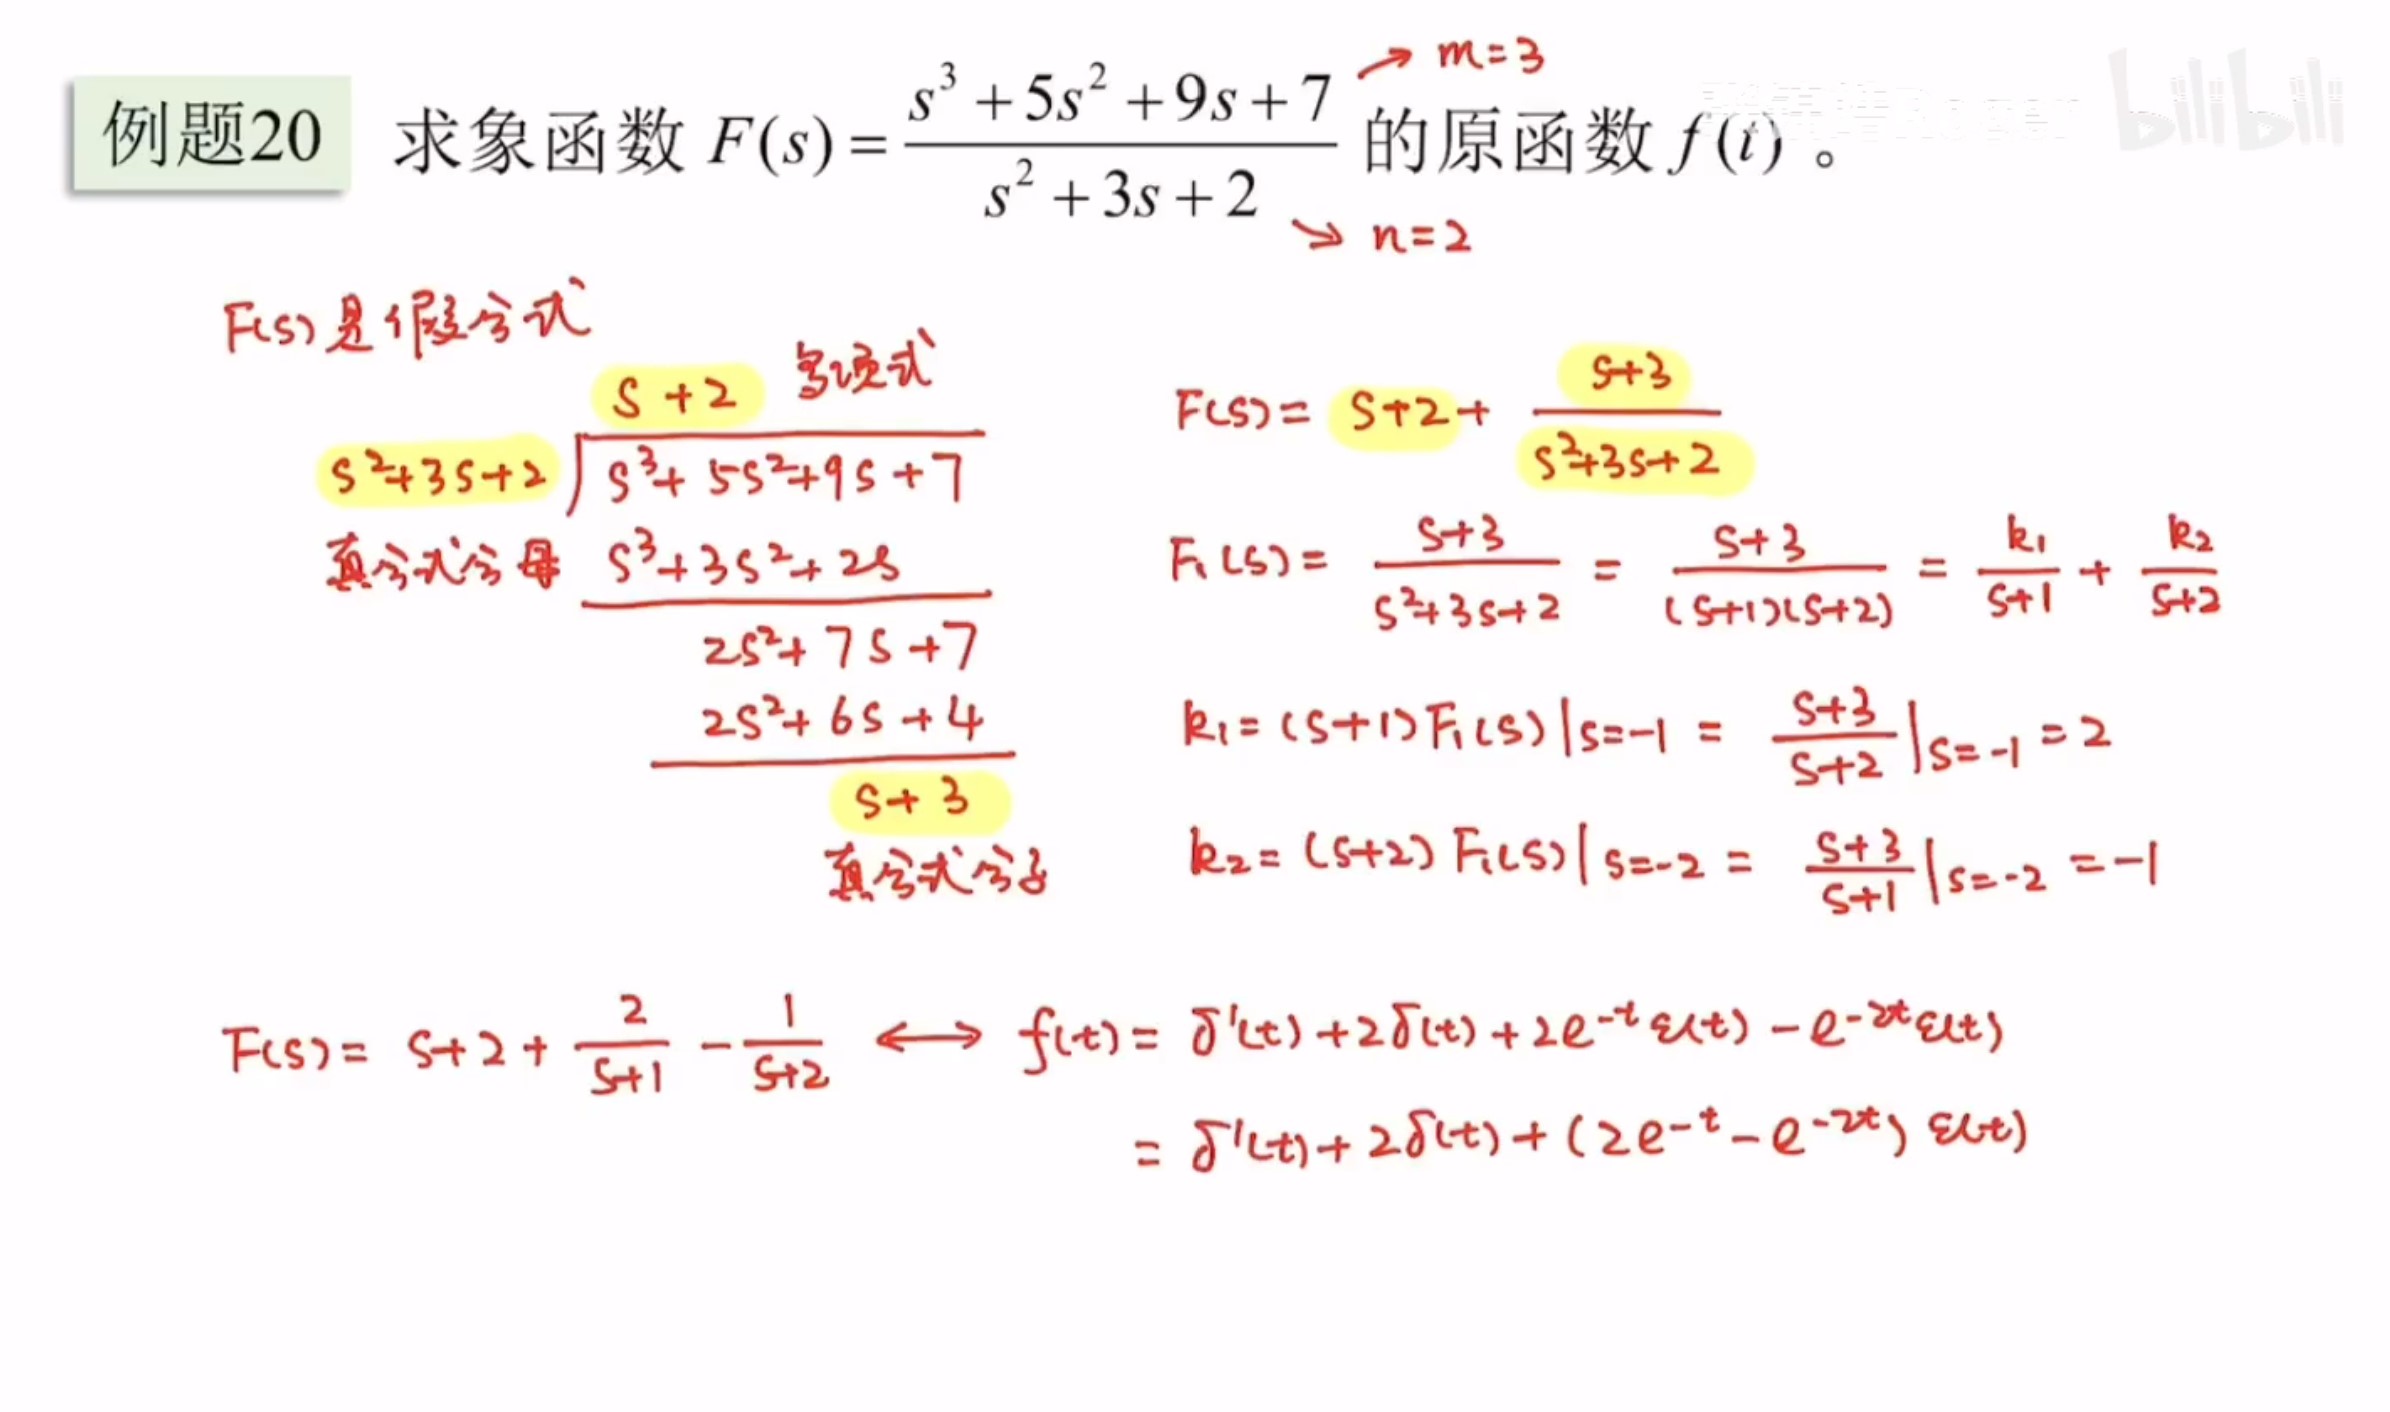 例题20 求象函数 F(s) = (s³+5s²+9s+7)/(s²+3s+2) 的原函数 f(t) 。
→ m=3
→ n=2
bilibili
F(s)是假分式
s+2 多项式
s²+3s+2 ) s³+5s²+9s+7
真分式分母 s³+3s²+2s
2s²+7s+7
2s²+6s+4
s+3
真分式分子
F(s) = s+2 + (s+3)/(s²+3s+2)
F₁(s) = (s+3)/(s²+3s+2) = (s+3)/((s+1)(s+2)) = k₁/(s+1) + k₂/(s+2)
k₁ = (s+1)F₁(s)|s=-1 = (s+3)/(s+2)|s=-1 = 2
k₂ = (s+2)F₁(s)|s=-2 = (s+3)/(s+1)|s=-2 = -1
F(s) = s+2 + 2/(s+1) - 1/(s+2) ⟷ f(t) = δ'(t)+2δ(t)+2e^{-t}ε(t)-e^{-2t}ε(t)
= δ'(t)+2δ(t)+(2e^{-t}-e^{-2t})ε(t)